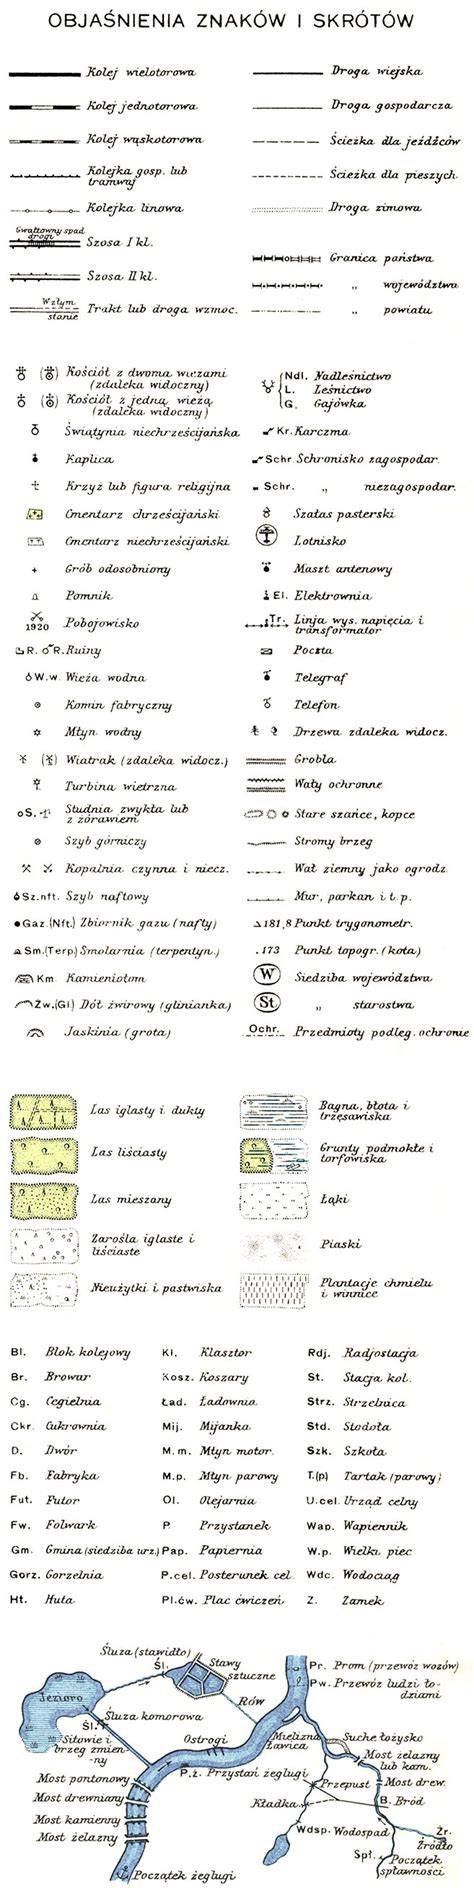 OBJAŚNIENIA ZNAKÓW I SKRÓTÓW
Kolej wielotorowa
Kolej jednotorowa
Kolej wąskotorowa
Kolejka gosp. lub
tramwaj
Kolejka linowa
Gwałtowny spad
drogi
Szosa I kl.
Szosa II kl.
Wzłym
stanie
Trakt lub droga wzmoc.
Droga wiejska
Droga gospodarcza
Ścieżka dla jeźdźców
Ścieżka dla pieszych
Droga zimowa
Granica państwa
„ województwa
„ powiatu
Kościół z dwoma wieżami
(zdaleka widoczny)
Kościół z jedną wieżą
(zdaleka widoczny)
Świątynia niechrześcijańska
Kaplica
Krzyż lub figura religijna
Cmentarz chrześcijański
Cmentarz niechrześcijański
Grób odosobniony
Pomnik
1920 Pobojowisko
R. R. Ruiny
W.w. Wieża wodna
Komin fabryczny
Młyn wodny
Wiatrak (zdaleka widocz.)
Turbina wietrzna
S. Studnia zwykła lub
z żórawiem
Szyb górniczy
Kopalnia czynna i niecz.
Sz.nft. Szyb naftowy
Gaz.(Nft.) Zbiornik gazu (nafty)
Sm.(Terp.) Smolarnia (terpentyn.)
Km. Kamieniołom
Żw.(Gl.) Dół żwirowy (glinianka)
Jaskinia (grota)
Ndl. Nadleśnictwo
L. Leśnictwo
G. Gajówka
Kr. Karczma
Schr. Schronisko zagospodar.
Schr. „ niezagospodar.
Szałas pasterski
Lotnisko
Maszt antenowy
El. Elektrownia
Tr. Linja wys. napięcia i
transformator
Poczta
Telegraf
Telefon
Drzewa zdaleka widocz.
Grobla
Wały ochronne
Stare szańce, kopce
Stromy brzeg
Wał ziemny jako ogrodz.
Mur, parkan i t.p.
181,8 Punkt trygonometr.
.173 Punkt topogr. (kota)
W Siedziba województwa
St „ starostwa
Ochr. Przedmioty podleg. ochronie
Las iglasty i dukty
Las liściasty
Las mieszany
Zarośla iglaste i
liściaste
Nieużytki i pastwiska
Bagna, błota i
trzęsawiska
Grunty podmokłe i
torfowiska
Łąki
Piaski
Plantacje chmielu
i winnice
Bl. Blok kolejowy
Br. Browar
Cg. Cegielnia
Ckr. Cukrownia
D. Dwór
Fb. Fabryka
Fut. Futor
Fw. Folwark
Gm. Gmina (siedziba urz.)
Gorz. Gorzelnia
Ht. Huta
Kl. Klasztor
Kosz. Koszary
Ład. Ładownia
Mij. Mijanka
M.m. Młyn motor.
M.p. Młyn parowy
Ol. Olejarnia
P. Przystanek
Pap. Papiernia
P.cel. Posterunek cel.
Pl.ćw. Plac ćwiczeń
Rdj. Radjostacja
St. Stacja kol.
Strz. Strzelnica
Std. Stodoła
Szk. Szkoła
T.(p) Tartak (parowy)
U.cel. Urząd celny
Wap. Wapiennik
W.p. Wielki piec
Wdc. Wodociąg
Z. Zamek
Śluza (stawidło)
Śl.
Stawy
sztuczne
Jezioro
Rów
Pr. Prom (przewóz wozów)
Pw. Przewóz ludzi ło-
dziami
Śluza komorowa
Śl.
Sitowie i
brzeg zmien-
ny
Ostrogi
Mielizna
ławica
Suche łożysko
Most żelazny
lub kam.
P.ż. Przystań żeglugi
Przepust
Most drew.
Most pontonowy
Most drewniany
Most kamienny
Most żelazny
Kładka
B. Bród
Wdsp. Wodospad
Źr.
Źródło
Spł.
Początek
spławności
Początek żeglugi